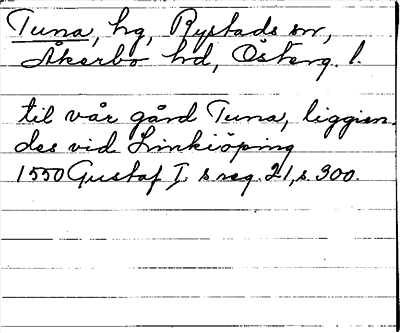 Tuna, hg, Rystads sn,
Åkerbo hd, Österg. l.
til vår gård Tuna, liggien-
des vid Linnkiöping
1550 Gustaf I s reg. 21, s. 300.